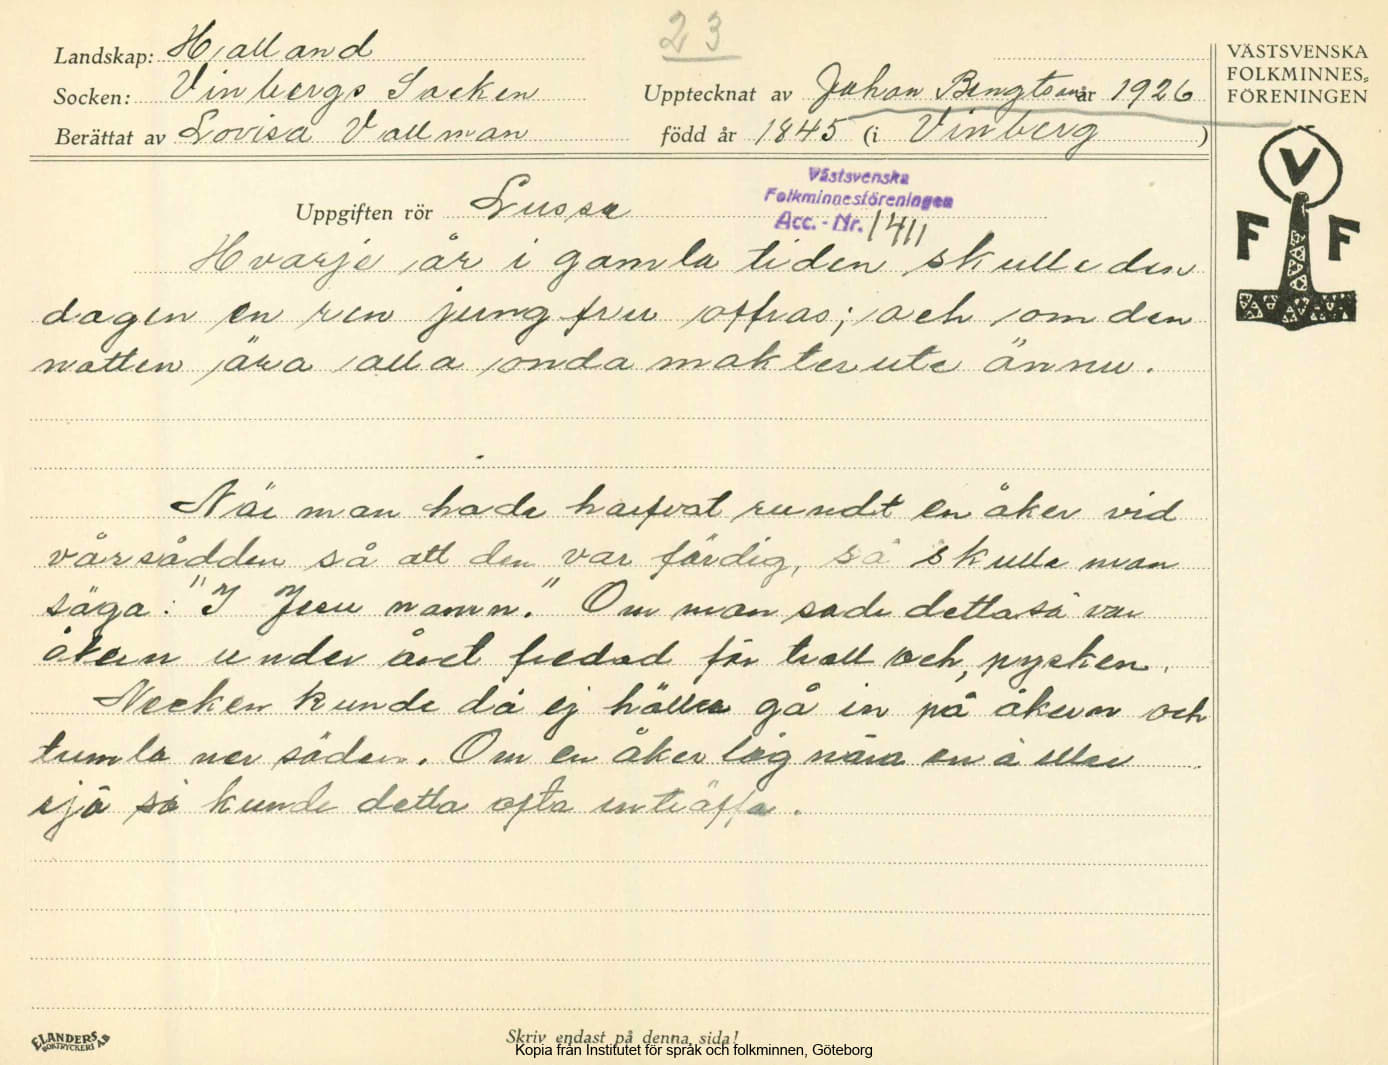 23
Landskap: Halland
Socken: Vinbergs Socken
Upptecknat av Johan Bengtson år 1926
Berättat av Lovisa Vallman
född år 1845 (i Vinberg)
VÄSTSVENSKA
FOLKMINNES-
FÖRENINGEN
V
F F
Västsvenska
Folkminnesföreningen
Acc. - Nr. 1411
Uppgiften rör Lusse
Hvarje år i gamla tiden skulle den
dagen en ren jungfru offras; och om den
natten ära alla onda makter ute ännu.
När man hade harfvat rundt en åker vid
vårsådden så att den var färdig, så skulle man
säga: "I Jesu namn." Om man sade detta så var
åkern under året fredad för troll och pysken.
Necken kunde då ej häller gå in på åkern och
tumla ner säden. Om en åker låg nära en å eller
sjö så kunde detta ofta inträffa.
ELANDERS
BOKTRYCKERI AB
Skriv endast på denna sida!
Kopia från Institutet för språk och folkminnen, Göteborg